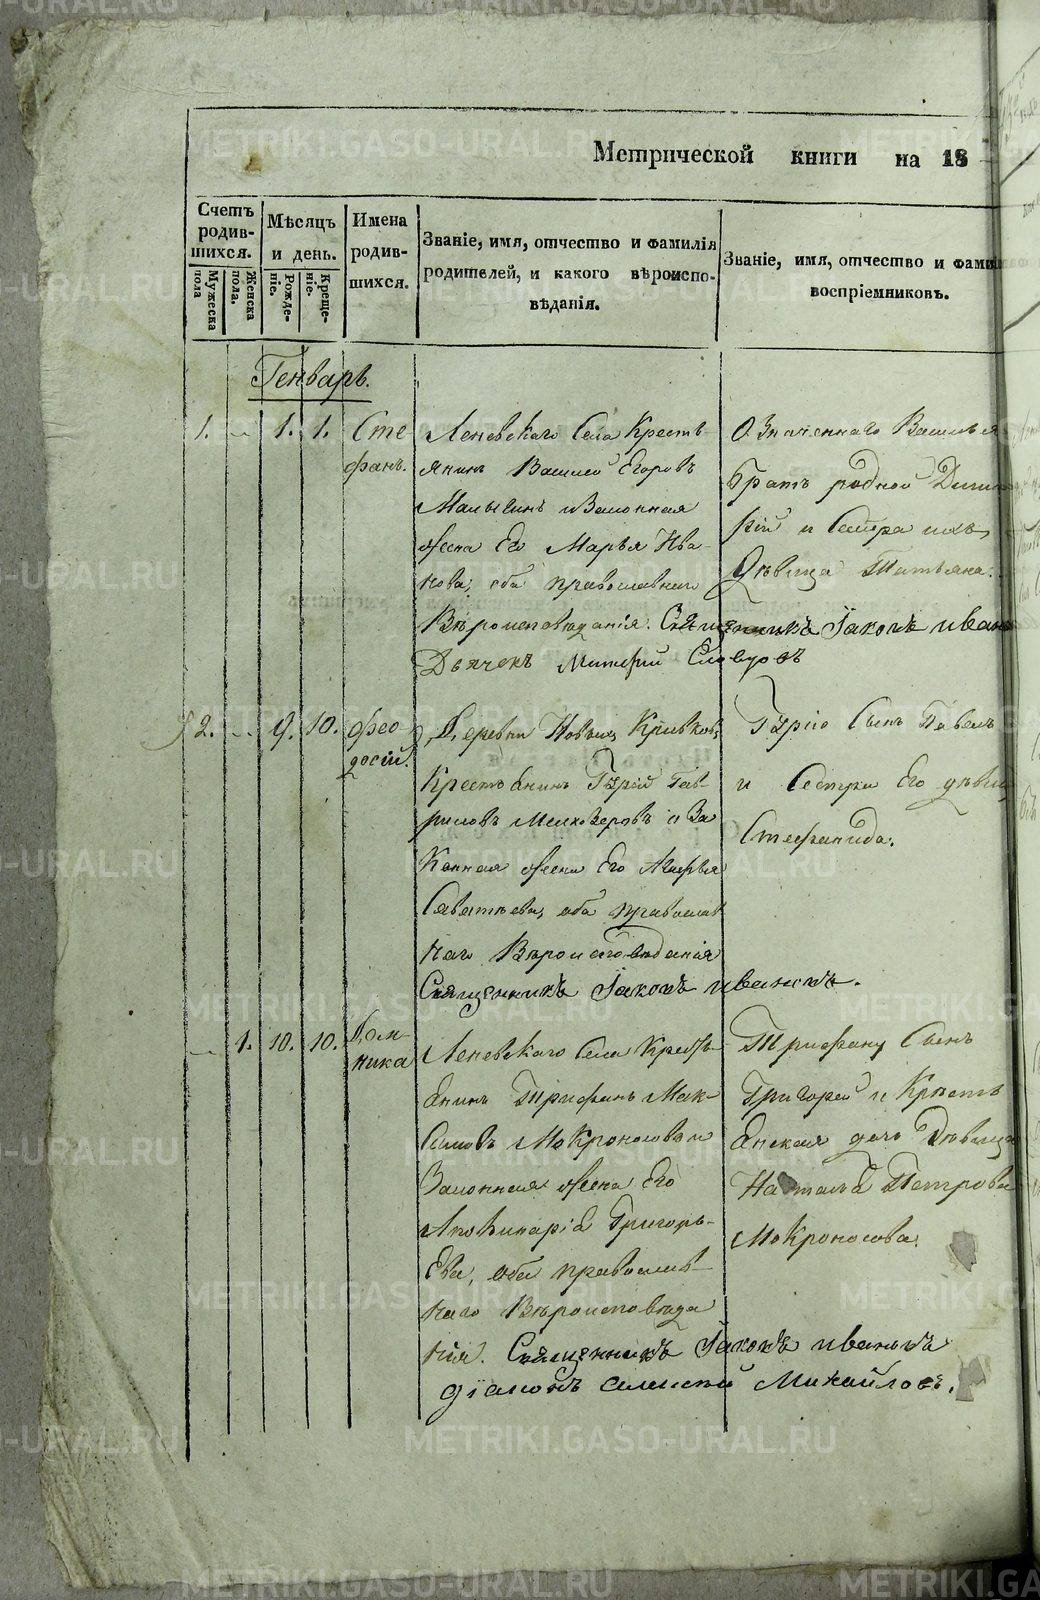 Метрической книги на 18
Счетъ родив-шихся.
Мужеска пола
Женска пола.
Мѣсяцъ и день.
Рожде-ніе.
Креще-ніе.
Имена родив-шихся.
Званіе, имя, отчество и фамилія
родителей, и какого вѣроиспо-
вѣданія.
Званіе, имя, отчество и фами
воспріемниковъ.
Генварь.
1. 1. 1. Сте
фанъ.
Леневскаго Села Кресть-
янинъ Василій Егоровъ
Малыгинъ и Законная
жена Его Марья Ива-
нова, оба православнаго
Вѣроисповѣданія. Священникъ Іаковъ Иван
Дьячекъ Словцовъ
Означеннаго Василья
Братъ родной Дими
рій и Сестра ихъ,
Дѣвица Татьяна.
2. 9. 10. Фео
досій.
Деревни Новыхъ Кривков,
Крестьянинъ Гурій Гав-
риловъ Мелкозеровъ и За
конная жена Его Агафья
Саватѣева, оба православ
наго Вѣроисповѣданія
Священникъ Іаковъ Ивановъ.
Гурію Сынъ Павелъ
и Сестра Его дѣвиц
Стефанида.
1. 10. 10. Дом-
ника
Леневскаго Села Кресть-
янинъ Трифанъ Мак-
симовъ Мокроносовъ и
Законная жена Его
Аполинарія Григорь-
Ева, оба православ-
наго Вѣроисповѣда
нія. Священникъ Іаковъ Ивановъ
діаконъ Алексѣй Михайловъ.
Трифану Сынъ
Григорей и Кресть
янская дочь Дѣвица
Наталья Петрова
Мокроносова.
METRIKI.GASO-URAL.RU